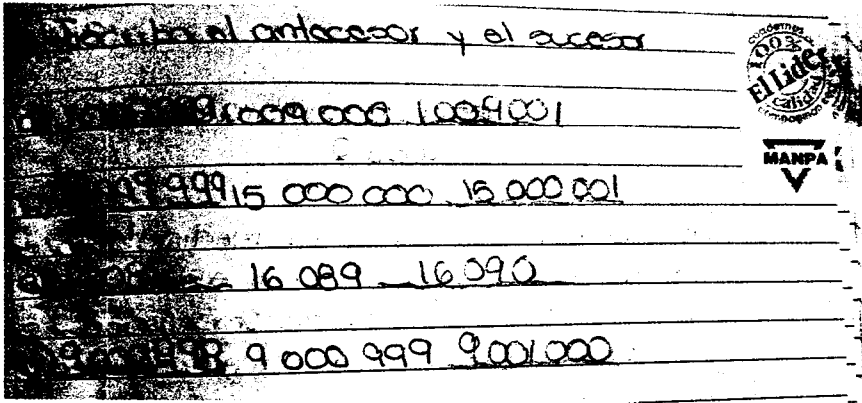 Escriba el antecesor y el sucesor
1 009 000 1 009 001
999 15 000 000 15 000 001
16 089 16 090
9 000 999 9 001 000
cuadernos
100%
El Líder
calidad
MANPA